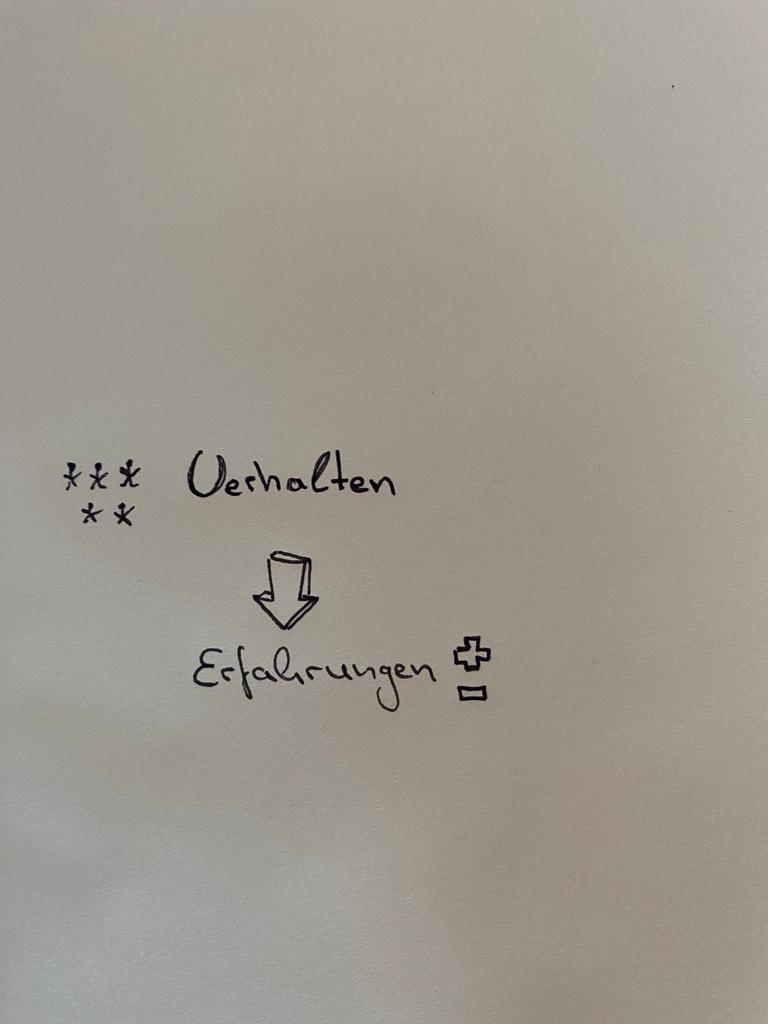 Verhalten
Erfahrungen